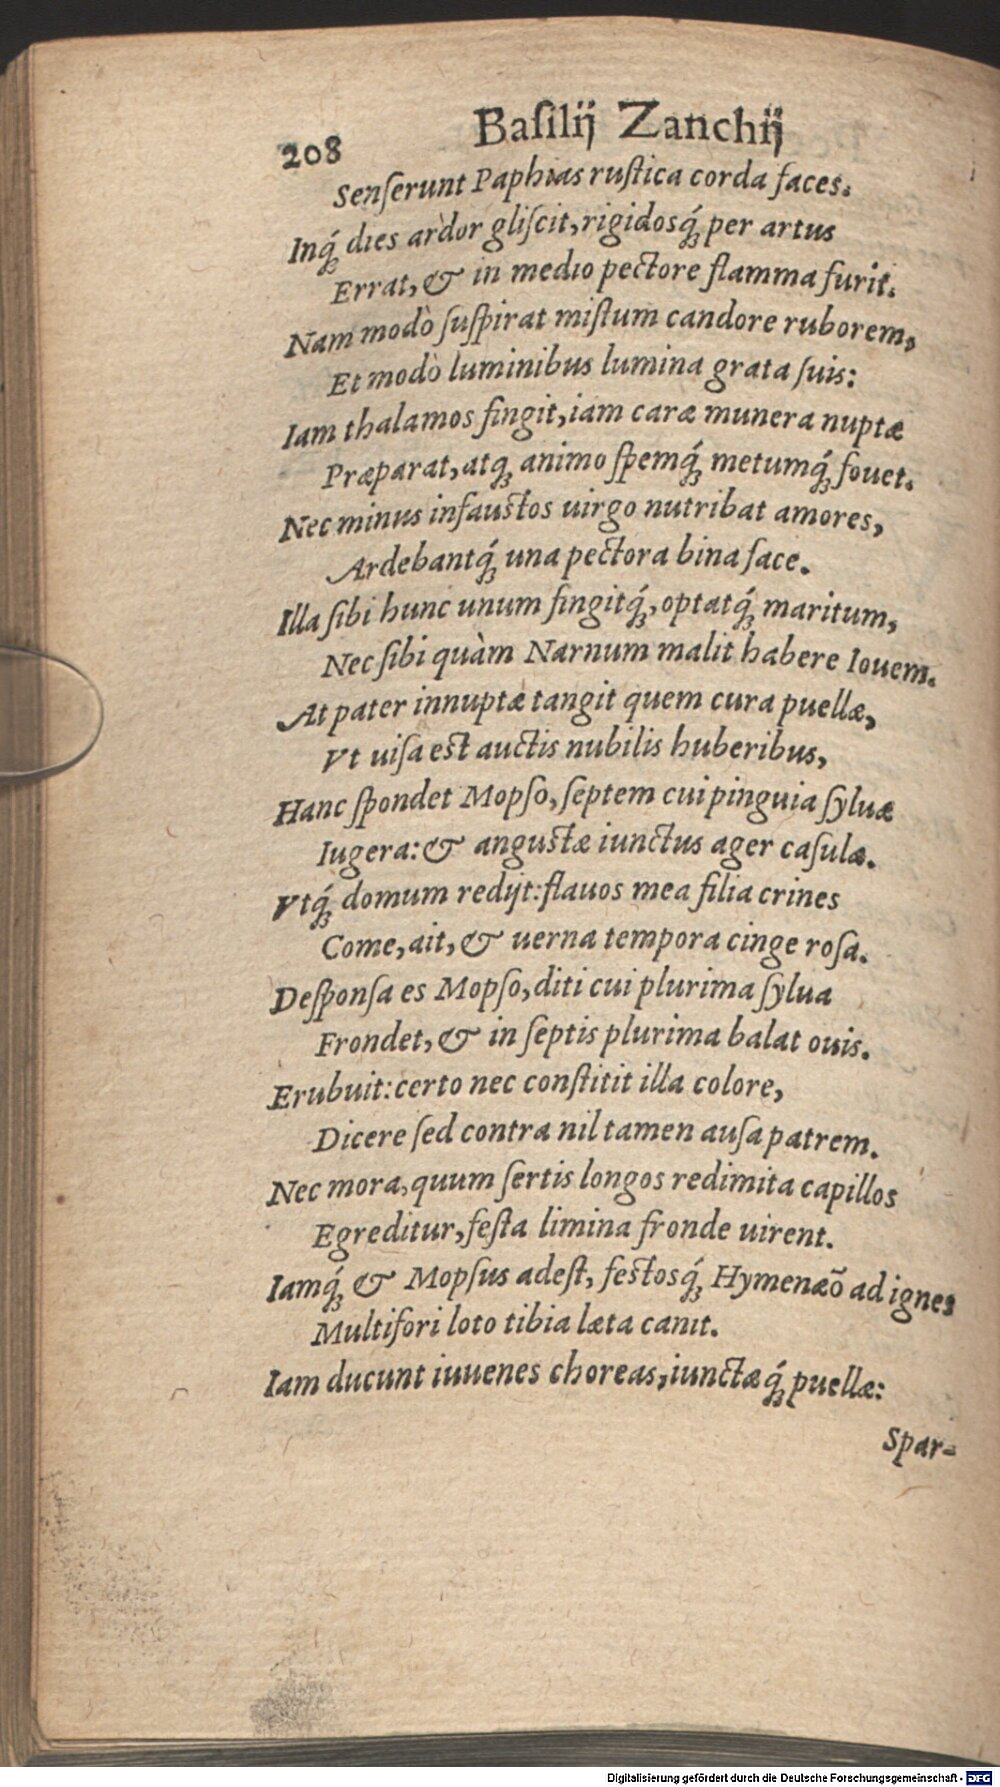 208 Baſilij Zanchij
Senſerunt Paphias ruſtica corda faces.
Inq́ꝫ dies ardor gliſcit, rigidosq́ꝫ per artus
Errat, & in medio pectore flamma furit.
Nam modò ſuſpirat miſtum candore ruborem,
Et modò luminibus lumina grata ſuis:
Iam thalamos fingit, iam caræ munera nuptæ
Præparat, atqꝫ animo ſpemq́ꝫ metumq́ꝫ fouet.
Nec minus infauſtos uirgo nutribat amores,
Ardebantq́ꝫ una pectora bina face.
Illa ſibi hunc unum fingitq́ꝫ, optatq́ꝫ maritum,
Nec ſibi quàm Narnum malit habere Iouem.
At pater innuptæ tangit quem cura puellæ,
Vt uiſa eſt auctis nubilis huberibus,
Hanc ſpondet Mopſo, ſeptem cui pinguia ſyluæ
Iugera: & anguſtæ iunctus ager caſulæ.
Vtq́ꝫ domum redijt: flauos mea filia crines
Come, ait, & uerna tempora cinge roſa.
Deſponſa es Mopſo, diti cui plurima ſylua
Frondet, & in ſeptis plurima balat ouis.
Erubuit: certo nec conſtitit illa colore,
Dicere ſed contra nil tamen auſa patrem.
Nec mora, quum ſertis longos redimita capillos
Egreditur, feſta limina fronde uirent.
Iamq́ꝫ & Mopſus adeſt, feſtosq́ꝫ Hymenæõ ad ignes
Multifori loto tibia læta canit.
Iam ducunt iuuenes choreas, iunctæq́ꝫ puellæ:
Spar-
Digitalisierung gefördert durch die Deutsche Forschungsgemeinschaft - DFG